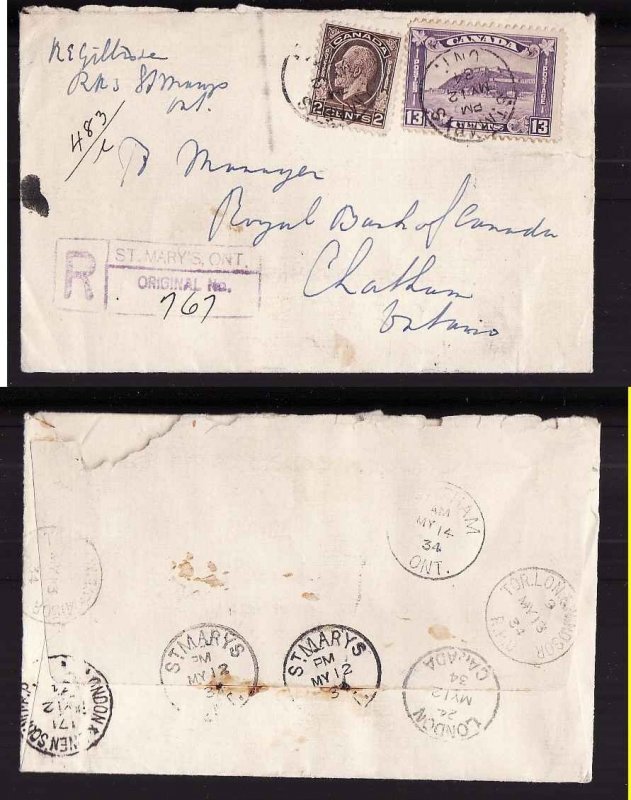 R E Gillion
RR 3 St Marys
Ont.
483
CANADA
2 CENTS 2
CANADA
POSTES POSTAGE
13 CENTS 13
ST. MARYS
PM
MY 12
34
ONT.
To Manager
Royal Bank of Canada
Chatham
Ontario
R
ST. MARY'S, ONT.
ORIGINAL No.
767
CHATHAM
AM
MY 14
34
ONT.
TOR. LON & WINDSOR
9
MY 13
34
R.P.O.
MY 13
34
ST. MARYS
PM
MY 12
ST. MARYS
PM
MY 12
LONDON
24
MY 12
34
CANADA
LONDON &
MY 12
171